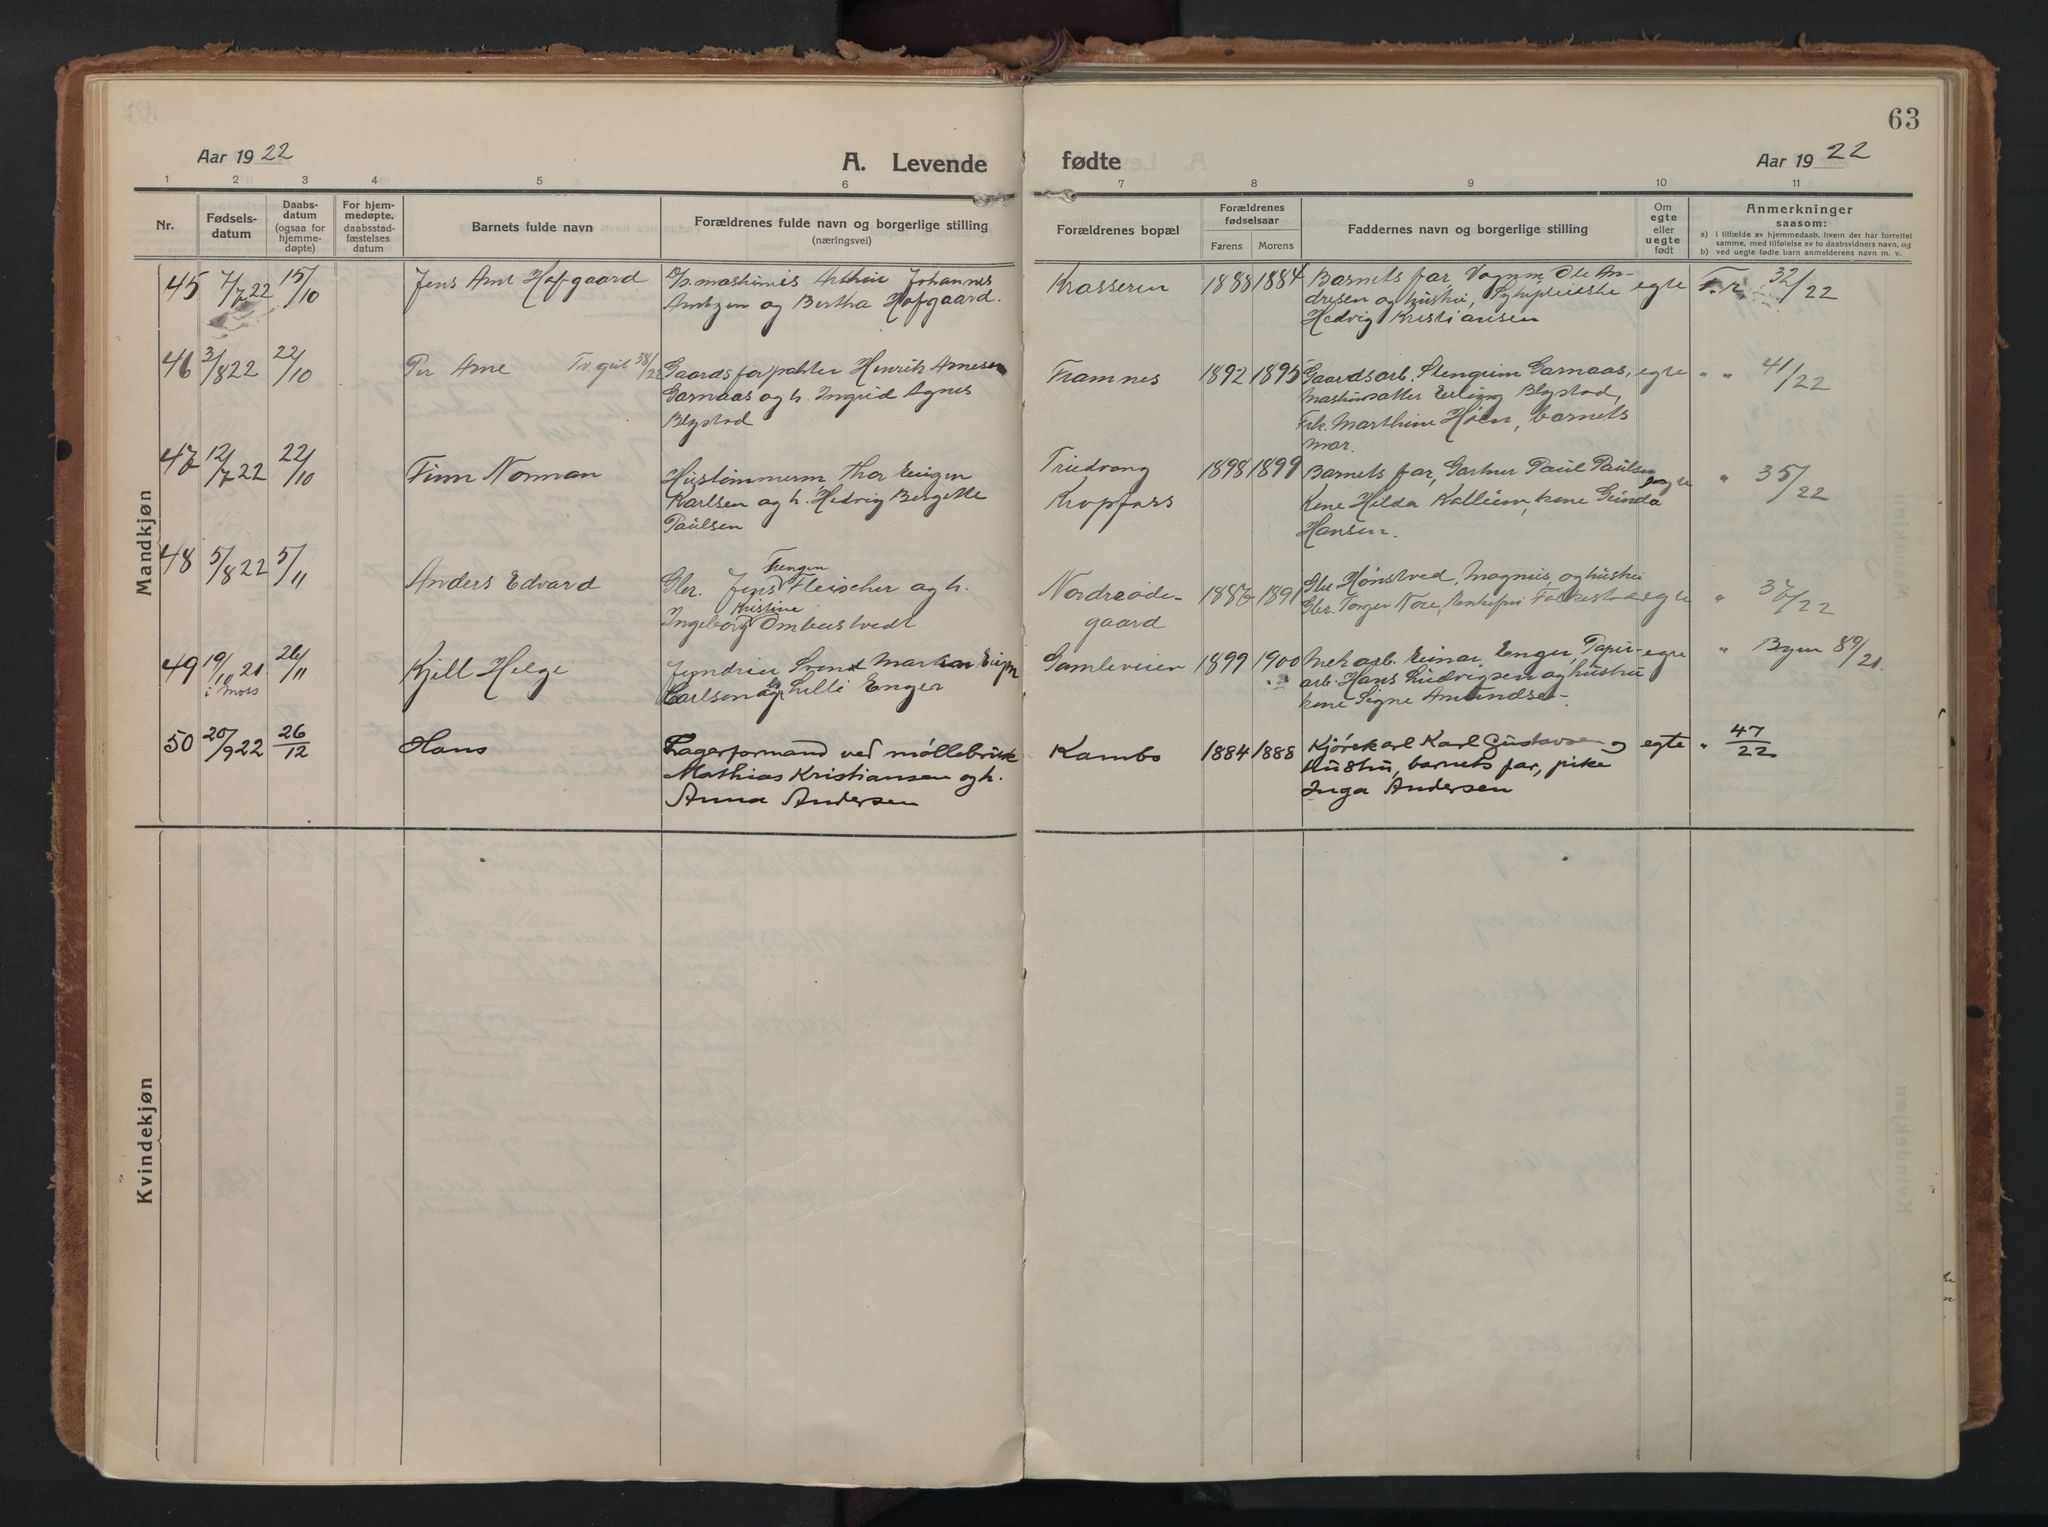 63
Aar 1922
A. Levende
fødte
Aar 1922
1 2 3 4 5 6 7 8 9 10 11
Nr.
Fødsels-
datum
Daabs-
datum
(ogsaa for
hjemme-
døpte)
For hjem-
medøpte,
daabsstad-
fæstelses
datum
Barnets fulde navn
Forældrenes fulde navn og borgerlige stilling
(næringsvei)
Forældrenes bopæl
Forældrenes
fødselsaar
Farens Morens
Faddernes navn og borgerlige stilling
Om
egte
eller
uegte
født
Anmerkninger
saasom:
a) i tilfælde av hjemmedaab, hvem der har forrettet
samme, med tilføielse av to daabsvidners navn, og
b) ved uegte fødte barn anmelderens navn m. v.
Mandkjøn
45 7/7 22 15/10 Jens Arne Hofgaard
Johannes
Arntzen og Bertha Hofgaard.
1888 1884
Barnets far, Vognm. Ole An-
dresen og hustru,
Hedvig Kristiansen
egte F.r. 32/22
46 3/8 22 22/10 Per Arne 38/22
Gaardsforpakter Henrik Arnesen
Garnaas og h. Ingrid Agnes
Blystad
Framnes
1892 1895
Gaardsarb. Stengrim Garnaas,
Erling Blystad,
Frk. Marthine Høen, barnets
mor.
egte " " 41/22
47 12/7 22 22/10 Finn Norman
Hustømmerm Thor Eugen
Karlsen og h. Hedvig Bergette
Paulsen
Kropfoss
1898 1899
Barnets far, Gartner Paul Paulsen
Kone Hilda Kallum, kone Gunda
Hansen.
egte " 35/22
48 5/8 22 5/11 Anders Edvard
Gbr. Jens Fleischer og h.
Kristine
Ingeborg Ombustvedt
Nordre
gaard
1891
Gbr Hønstved, Magnus, og hustru
Gbr. Torger Nore,
egte " 37/22
49 19/10 21. 26/11 Kjell Helge
i Moss
Carlson og Lilli Enger
Gamleveien
1899 1900
Mek arb. Einar Enger, Papir-
arb. Hans Ludvigsen og hustru
kone Signe Amundsen
egte " Bym 89/21.
50 20/9 22 26/12 Hans
Lagerformand ved møllebruk
Mathias Kristiansen og h.
Anna Andersen
Kambo
1884 1888
Kjørekarl Karl Gustavsen og
hustru, barnets far, pike
Inga Andersen
egte " 47/22
Kvindekjøn